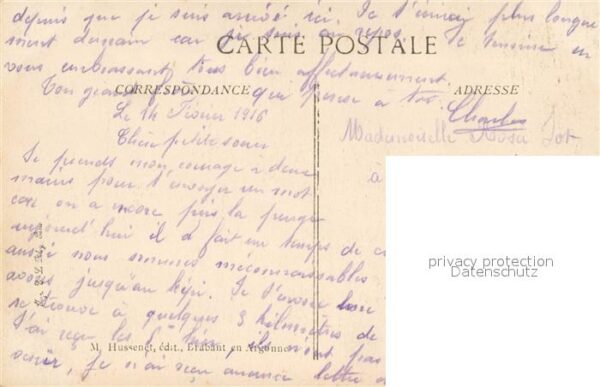 depuis que je suis arrivé ici. Je t'envoy plus longue
ment demain car je suis au repos. Je termine en
CARTE POSTALE
vous embrassant tres bien affectueusement
Ton grand frère que pense à toi
CORRESPONDANCE
ADRESSE
Charles
Le 14 Février 1916
Mademoiselle Rosa
Chère petite soeur
Je prends mon courage a deux
à
mains pour t'envoyer un mot
car on a encore pris la purge
aujourd'hui il a fait un temps de
aussi nous sommes méconnaissables
avons jusqu'au képi. Je t'assure
se trouve à quelques 3 kilomètres de
J'ai reçu les hier, ils n'ont pas
M. Hussenet, édit., Brabant en Argonne
je n'ai reçu aucune lettre
privacy protection
Datenschutz